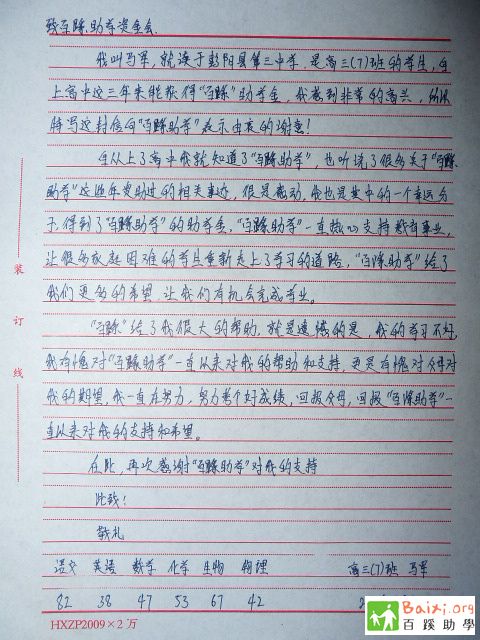 致百蹊助学资金会:
我叫马军,就读于彭阳县第三中学,是高三(7)班的学生,自
上高中这三年来能获得"百蹊"助学金,我感到非常的高兴,所以
特写这封信向"百蹊助学"表示由衷的谢意!
自从上了高中我就知道了"百蹊助学",也听说了很多关于"百蹊
助学"这些年资助过的相关事迹,很是感动,我也是其中的一个幸运分
子,得到了"百蹊助学"的助学金,"百蹊助学"一直热心支持教育事业,
让很多家庭困难的学生重新走上了学习的道路,"百蹊助学"给了
我们更多的希望,让我们有机会完成学业。
"百蹊"给了我很大的帮助,就是遗憾的是,我的学习不好,
我有愧对"百蹊助学"一直以来对我的帮助和支持,更是有愧对父母对
我的期望,我一直在努力,努力考个好成绩,回报父母,回报"百蹊助学"一
直以来对我的支持和希望。
在此,再次感谢"百蹊助学"对我的支持
此致!
敬礼
语文 英语 数学 化学 生物 物理 高三(7)班 马军
82 38 47 53 67 42
装
订
线
HXZP2009×2万
Baixi.org
百蹊助學